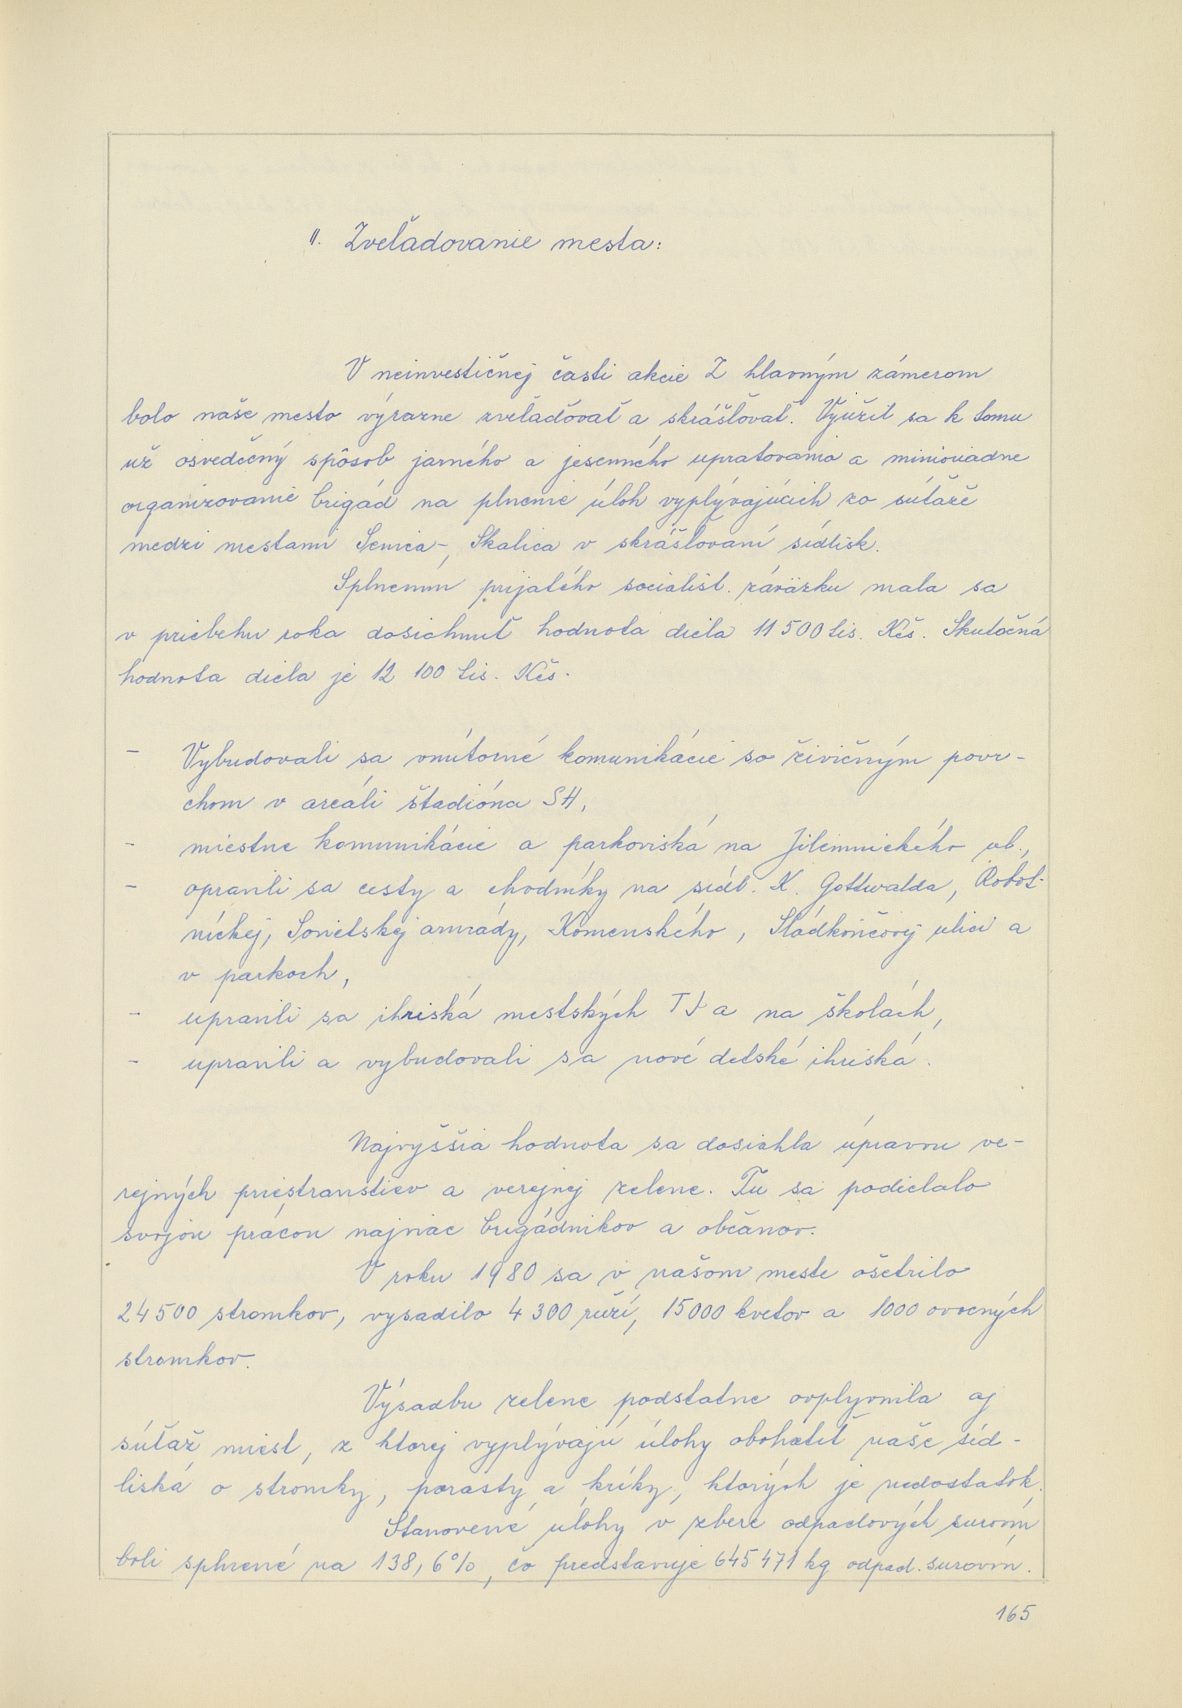 11. Zveľaďovanie mesta:
V neinvestičnej časti akcie Z hlavným zámerom
bolo naše mesto výrazne zveľaďovať a skrášľovať. Využil sa k tomu
už osvedčený spôsob jarného a jesenného upratovania a mimoriadne
organizovanie brigád na plnenie úloh vyplývajúcich zo súťaže
medzi mestami Senica-, Skalica v skrášľovaní sídlisk.
Splnením prijatého socialist. záväzku mala sa
v priebehu roka dosiahnuť hodnota diela 11 500 tis. Kčs. Skutočná
hodnota diela je 12 100 tis. Kčs.
- Vybudovali sa vnútorné komunikácie so živičným povr-
chom v areáli štadióna SH,
- miestne komunikácie a parkoviská na Jilemnického ul.,
- opravili sa cesty a chodníky na sídl. K. Gottwalda, Robot-
níckej, Sovietskej armády, Komenského, Sládkovičovej ulici a
v parkoch,
- upravili sa ihriská mestských TJ a na školách,
- upravili a vybudovali sa nové detské ihriská.
Najvyššia hodnota sa dosiahla úpravou ve-
rejných priestranstiev a verejnej zelene. Tu sa podielalo
svojou prácou najviac brigádnikov a občanov.
V roku 1980 sa v našom meste ošetrilo
24 500 stromkov, vysadilo 4 300 ruží, 15 000 kvetov a 1000 ovocných
stromkov.
Výsadbu zelene podstatne ovplyvnila aj
súťaž miest, z ktorej vyplývajú úlohy obohatiť naše síd-
liská o stromky, porasty a kríky, ktorých je nedostatok.
Stanovené úlohy v zbere odpadových surovín
boli splnené na 138,6%, čo predstavuje 645 471 kg odpad. surovín.
165